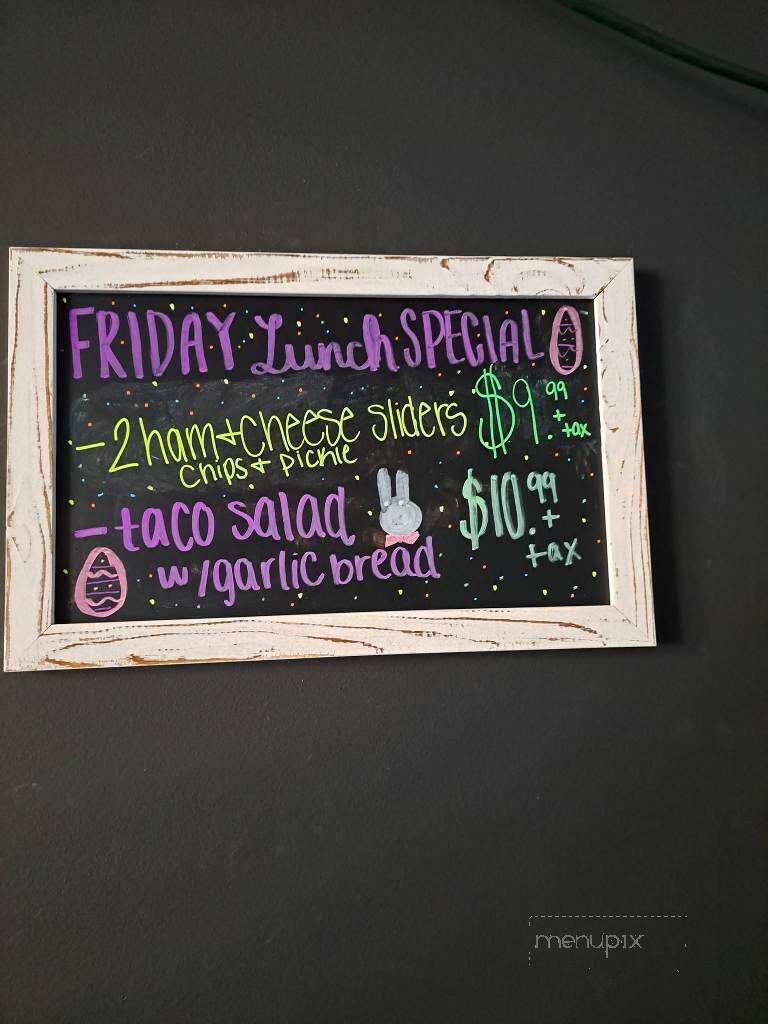 FRIDAY Lunch SPECIAL
- 2 ham + cheese sliders $9.99 + tax
chips + pickle
- taco salad $10.99 + tax
w/garlic bread
menupix